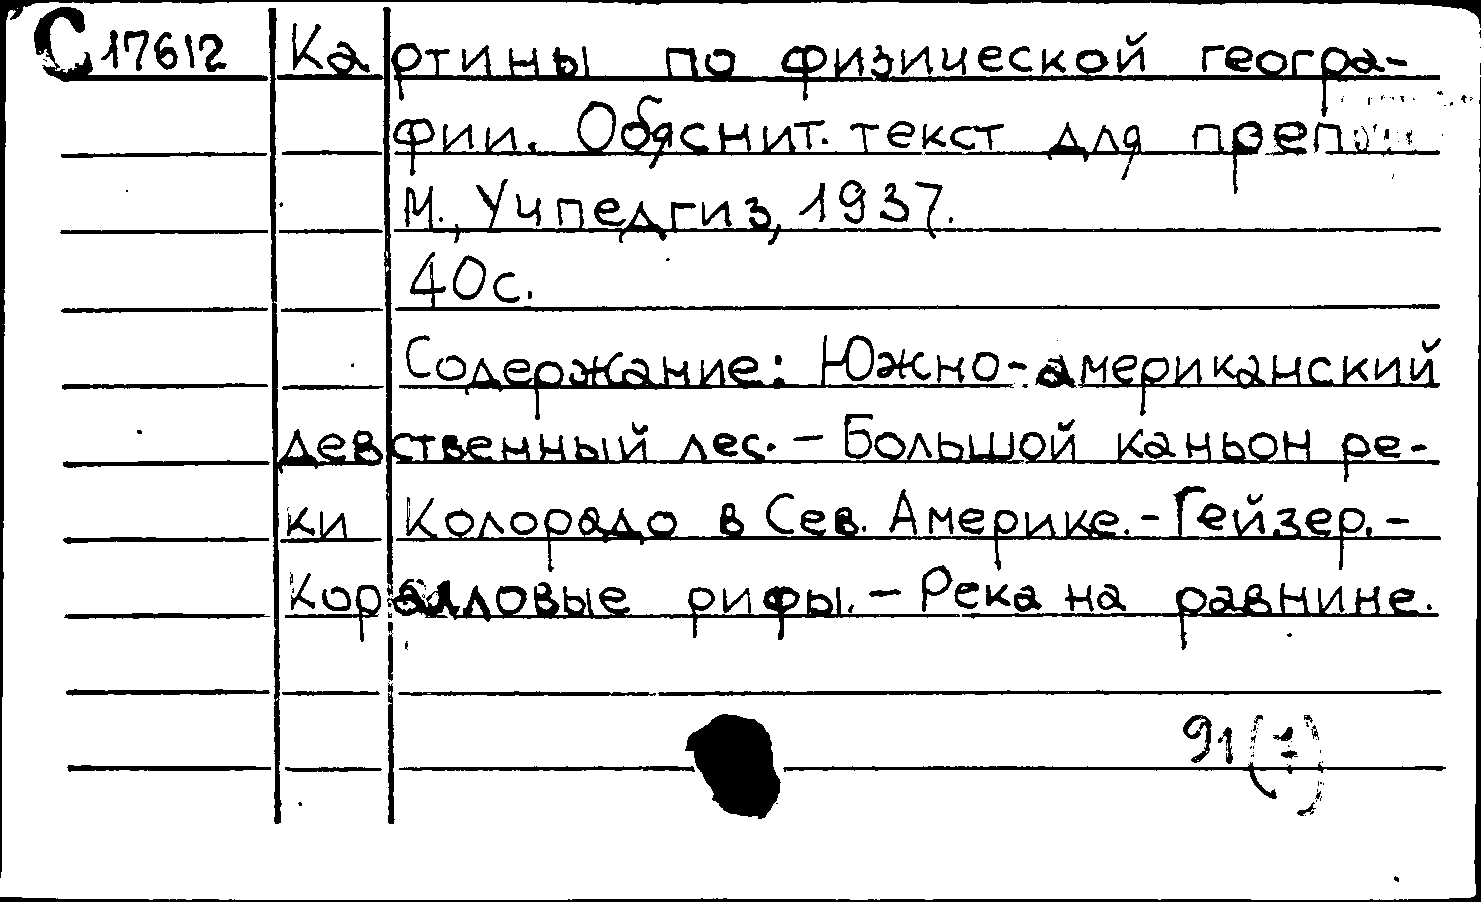 С 17612 Картины по физической геогра-
фии. Обяснит. текст для
М., Учпедгиз, 1937.
40с.
Содержание: Южно-американский
девственный лес. - Большой каньон ре-
ки Колорадо в Сев. Америке. - Гейзер. -
Коралловые рифы. - Река на равнине.